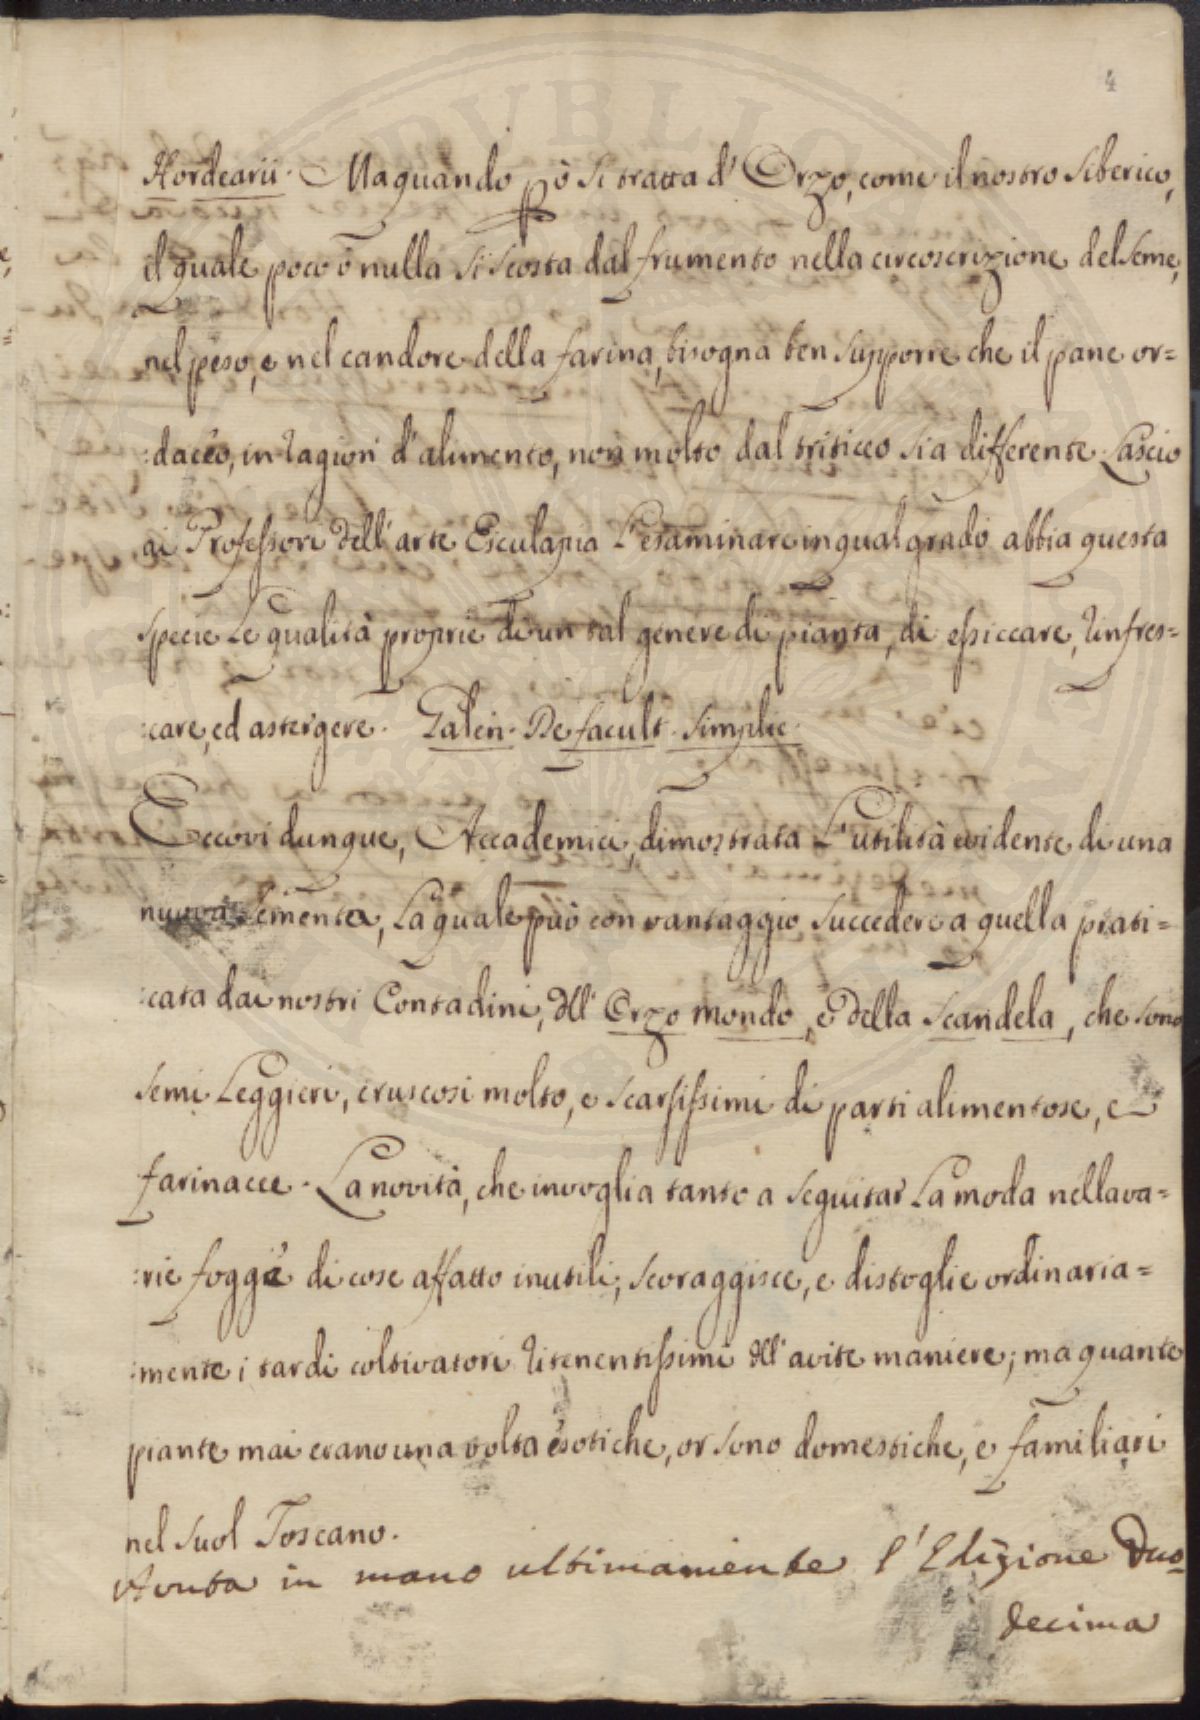 4
Hordearii. Ma quando però si tratta d'Orzo, come il nostro Siberico,
il quale poco ò nulla si scosta dal frumento nella circoscrizione del Seme,
nel peso, e nel candore della farina, bisogna ben supporre che il pane or=
:daceo, in ragion d'alimento, non molto dal triticeo sia differente. Lascio
ai Professori dell'arte Esculapia l'esaminare in qual grado abbia questa
specie le qualità proprie di un tal genere di pianta, di essiccare, rinfres=
:care, ed astergere. Galen. De facult. Simplic.
Eccovi dunque, Accademici, dimostrata l'utilità evidente di una
nuova Sementa, la quale può con vantaggio succedere a quella prati=
:cata dai nostri Contadini, dell'Orzo mondo, e della Scandela, che sono
semi leggieri, cruscosi molto, e scarsissimi di parti alimentose, e
farinacee. La novità, che invoglia tanto a seguitar la moda nella va=
:rie foggie di cose affatto inutili, scoraggisce, e distoglie ordinaria=
:mente i tardi coltivatori ritenentissimi dell'avite maniere; ma quante
piante mai erano una volta esotiche, or sono domestiche, e familiari
nel suol Toscano.
Avuta in mano ultimamente l'Edizione Duo=
decima